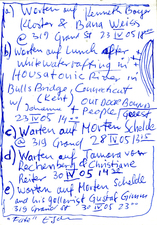 a) Warten auf Kenneth Bager
Kloster & Bana Weiss
@ 319 Grand St 23 IV 05
b) Warten auf Lunch after
Whitewaterrafting in
Housatonic River in
Bulls Bridge, Connecticut
(Kent) our
w/ Johanna + People
23 IV 05 14
c) Warten auf Morten Schelde
@ 319 Grand 28 IV 05
d) Warten auf Tamara von
Rechenberg & Christiane
Reiter 30 IV 05 14
e) Warten auf Morten Schelde
and his gallerist Gustaf
319 Grand St 30 IV 05 23
"Foto"